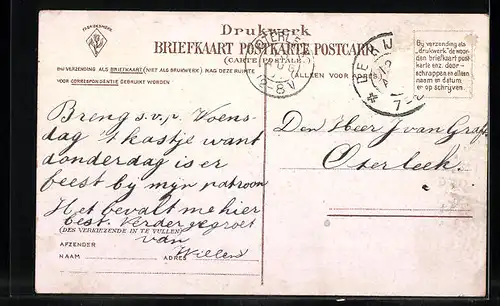 FABRIEKSMERK
Drukwerk
BRIEFKAART POSTKARTE POSTCARD
(CARTE POSTALE.)
BIJ VERZENDING ALS BRIEFKAART (NIET ALS DRUKWERK) MAG DEZE RUIMTE
VOOR CORRESPONDENTIE GEBRUIKT WORDEN
ALLEEN VOOR
Bij verzending als
„drukwerk" de woor-
den briefkaart post-
karte enz. door-
schrappen en alleen
naam en datum
er op schrijven.
8-V
7-8
Breng s.v.p. Woens-
dag 't kastje want
donderdag is er
feest bij mijn patroon
Het bevalt me hier
best. Verder gegroet
van
Willem
Den Heer J van Graft
Oterleek.
(DES VERKIEZENDE IN TE VULLEN)
AFZENDER
NAAM ADRES